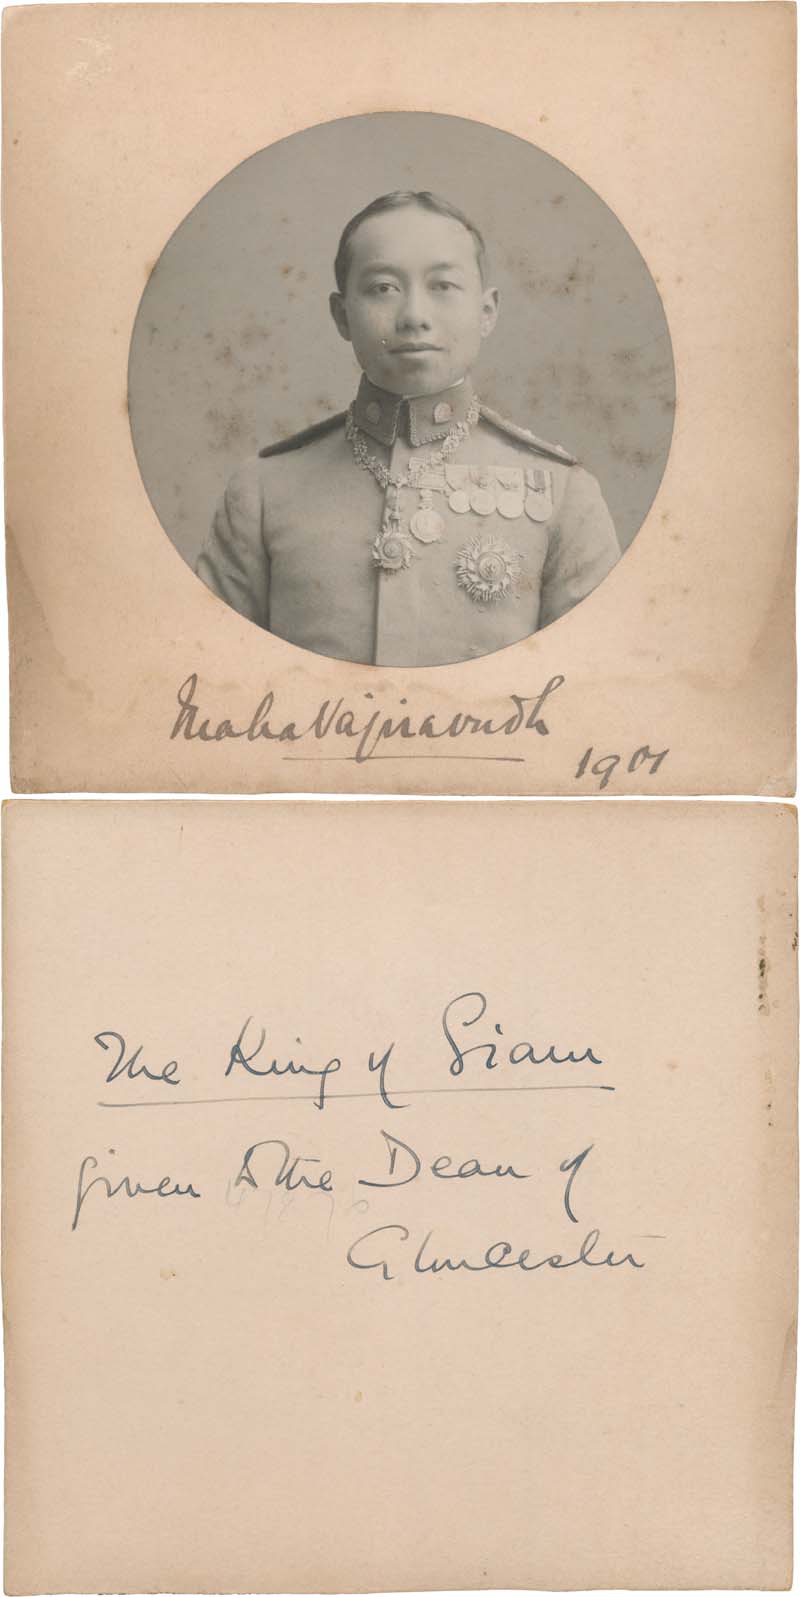 Maha Vajiravudh
1901
The King of Siam
given to the Dean of
Gloucester